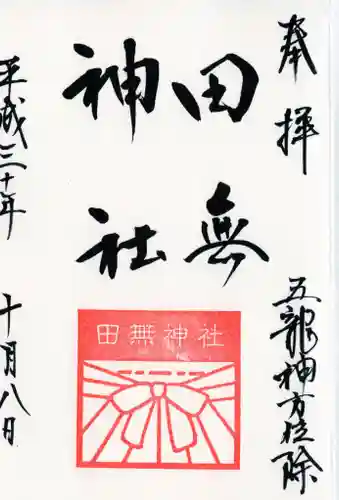 奉拝
五龍神方位除
田無
神社
田無神社
平成三十年 十月八日